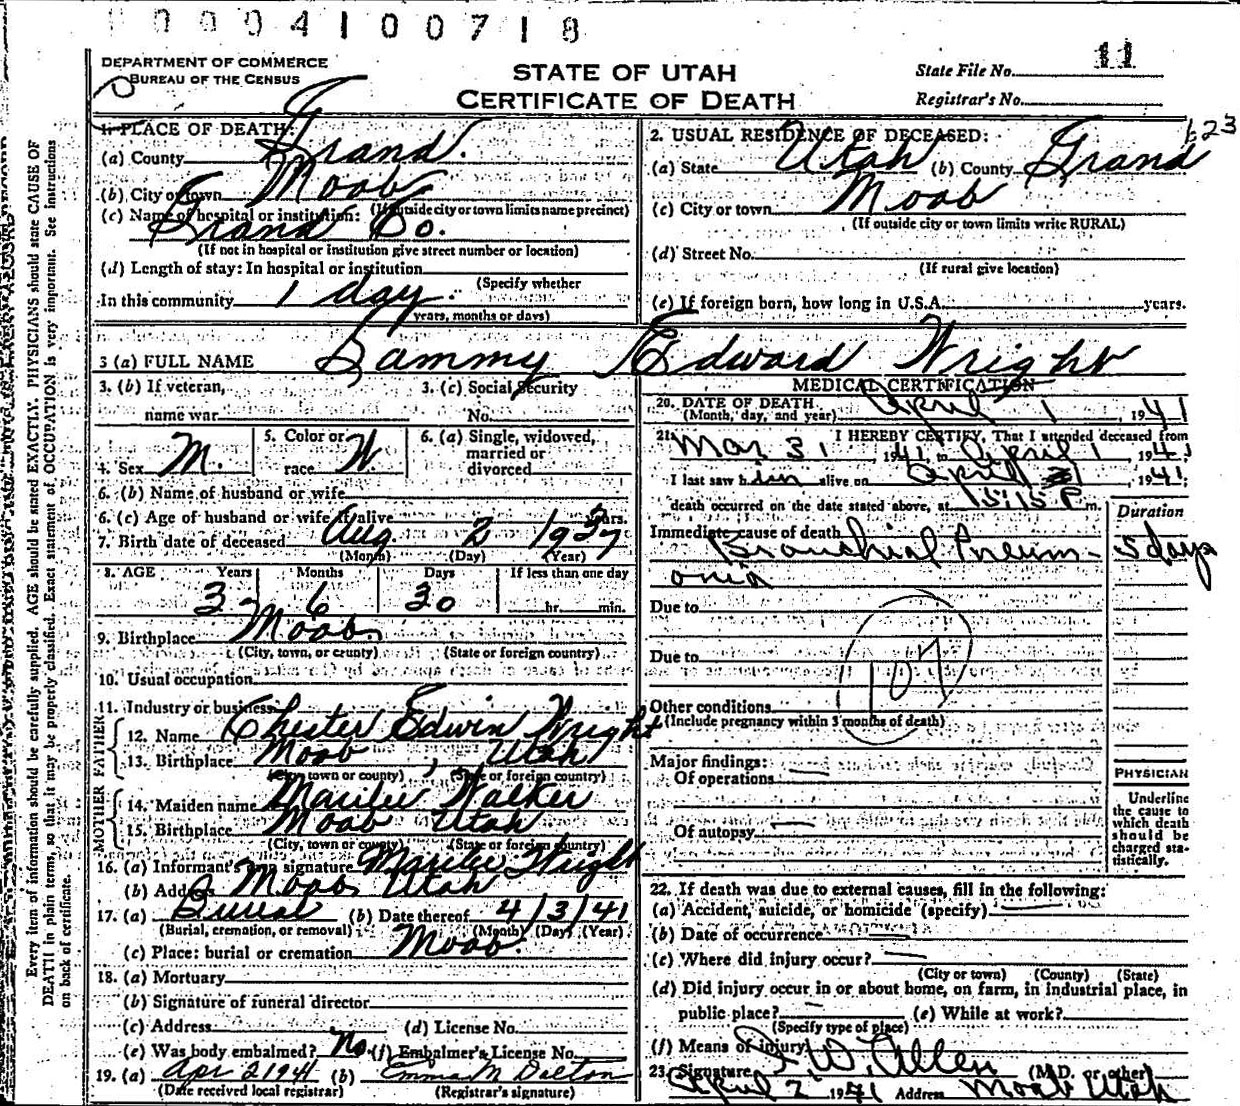 0004100718
DEPARTMENT OF COMMERCE
BUREAU OF THE CENSUS
STATE OF UTAH
CERTIFICATE OF DEATH
State File No. 11
Registrar's No.
1. PLACE OF DEATH:
(a) County Grand.
(b) City or town Moab
(If outside city or town limits name precinct)
(c) Name of hospital or institution:
Grand Co.
(If not in hospital or institution give street number or location)
(d) Length of stay: In hospital or institution
(Specify whether
In this community 1 day.
years, months or days)
2. USUAL RESIDENCE OF DECEASED:
(a) State Utah (b) County Grand
(c) City or town Moab
(If outside city or town limits write RURAL)
(d) Street No.
(If rural give location)
(e) If foreign born, how long in U.S.A. years.
3 (a) FULL NAME Sammy Edward Wright
3. (b) If veteran,
name war
3. (c) Social Security
No.
4. Sex M.
5. Color or
race W.
6. (a) Single, widowed,
married or
divorced
6. (b) Name of husband or wife
6. (c) Age of husband or wife if alive years.
7. Birth date of deceased Aug. 2 1937
(Month) (Day) (Year)
8. AGE Years Months Days If less than one day
3 6 30 hr. min.
9. Birthplace Moab.
(City, town, or county) (State or foreign country)
10. Usual occupation
11. Industry or business
FATHER
12. Name Chester Edwin Wright
13. Birthplace Moab, Utah
(City, town or county) (State or foreign country)
MOTHER
14. Maiden name Marilee Walker
15. Birthplace Moab Utah
(City, town or county) (State or foreign country)
16. (a) Informant's own signature Marilee Wright
(b) Address Moab, Utah
17. (a) Burial (b) Date thereof 4/3/41
(Burial, cremation, or removal) (Month) (Day) (Year)
(c) Place: burial or cremation Moab.
18. (a) Mortuary
(b) Signature of funeral director
(c) Address (d) License No.
(e) Was body embalmed? No (f) Embalmer's License No.
19. (a) Apr 2 1941 (b) Emma M Dalton
(Date received local registrar) (Registrar's signature)
MEDICAL CERTIFICATION
20. DATE OF DEATH
(Month, day, and year) April 1, 1941
21. I HEREBY CERTIFY, That I attended deceased from
Mar 31, 1941, to April 1, 1941
I last saw him alive on April 1, 1941;
death occurred on the date stated above, at P m.
Duration
Immediate cause of death
Bronchial Pneum- 5 days
onia
Due to
Due to
107
Other conditions
(Include pregnancy within 3 months of death)
Major findings:
Of operations —
Of autopsy —
PHYSICIAN
Underline
the cause to
which death
should be
charged sta-
tistically.
22. If death was due to external causes, fill in the following:
(a) Accident, suicide, or homicide (specify) —
(b) Date of occurrence —
(c) Where did injury occur? —
(City or town) (County) (State)
(d) Did injury occur in or about home, on farm, in industrial place, in
public place? — (e) While at work?
(Specify type of place)
(f) Means of injury
23. Signature W. Allen (M.D. or other)
April 2 1941 Address Moab Utah
Every item of information should be carefully supplied. AGE should be stated EXACTLY. PHYSICIANS should state CAUSE OF
DEATH in plain terms, so that it may be properly classified. Exact statement of OCCUPATION is very important. See instructions
on back of certificate.